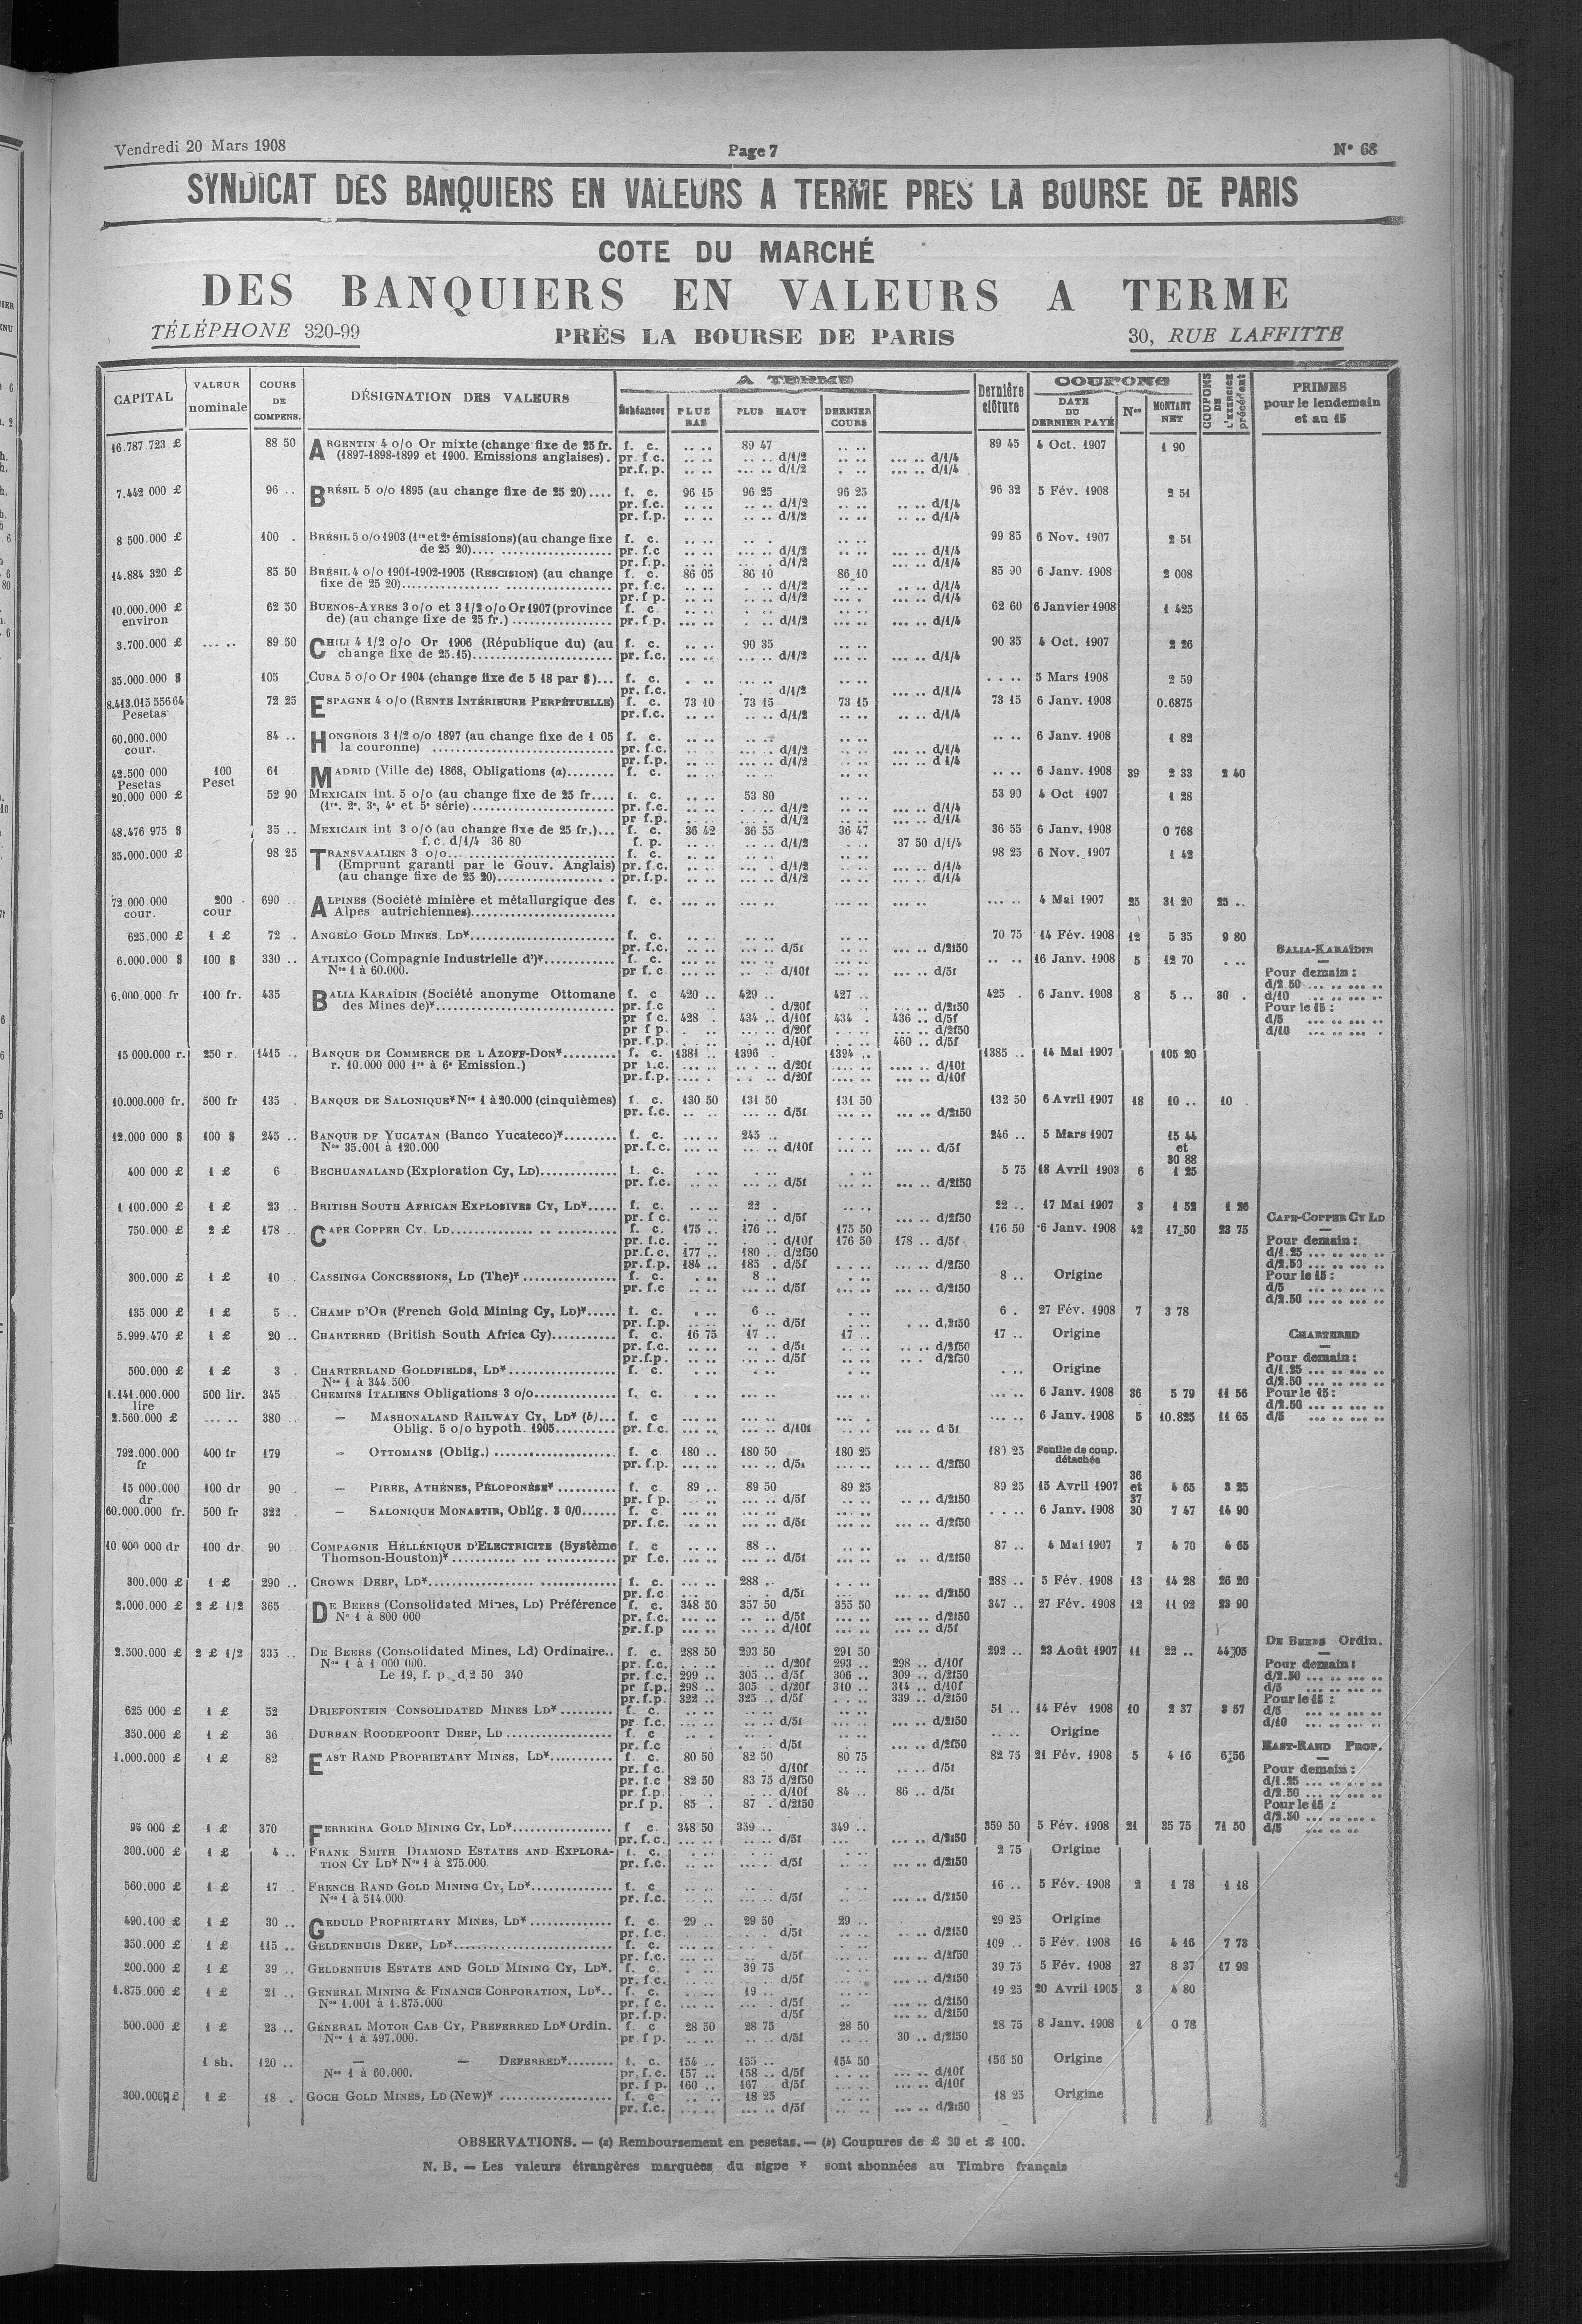 Vendredi 20 Mars 1908 Page 7 N° 68
SYNDICAT DES BANQUIERS EN VALEURS A TERME PRES LA BOURSE DE PARIS
COTE DU MARCHÉ
DES BANQUIERS EN VALEURS A TERME
TÉLÉPHONE 320-99 PRÈS LA BOURSE DE PARIS 30, RUE LAFFITTE
CAPITAL VALEUR nominale COURS DE COMPENS. DÉSIGNATION DES VALEURS A TERME Échéances PLUS BAS PLUS HAUT DERNIER COURS Dernière clôture COUPONS DATE DU DERNIER PAYÉ Nos MONTANT NET COUPONS DE L'EXERCICE précédent PRIMES pour le lendemain et au 15
16.787 723 £ 88 50 ARGENTIN 4 o/o Or mixte (change fixe de 25 fr. f. c. .. .. 89 47 89 45 4 Oct. 1907 1 90
(1897-1898-1899 et 1900. Emissions anglaises). pr. f.c. .. .. .. .. d/1/2 .. .. ... .. d/1/4
pr.f. p. .. .. ... .. d/1/2 . .. ... .. d/1/4
7.442 000 £ 96 .. BRÉSIL 5 o/o 1895 (au change fixe de 25 20).... f. c. 96 15 96 25 96 25 96 32 5 Fév. 1908 2 51
pr. f.c. .. .. .. .. d/1/2 .. .. .. .. d/1/4
pr. f.p. .. .. .. .. d/1/2 .. .. .. .. d/1/4
8 500.000 £ 100 . BRÉSIL 5 o/o 1903 (1re et 2e émissions)(au change fixe f. c. .. .. .. . .. .. 99 85 6 Nov. 1907 2 51
de 25 20).... pr. f.c .. .. ... .. d/1/2 .. .. ... .. d/1/4
pr. f.p. .. .. .. .. d/1/2 .. .. ... .. d/1/4
14.884 320 £ 85 50 BRÉSIL 4 o/o 1901-1902-1905 (RESCISION) (au change f. c. 86 05 86 10 86 10 85 90 6 Janv. 1908 2 008
fixe de 25 20)... pr. f.c. .. .. ... .. d/1/2 .. .. .. .. d/1/4
pr. f p. .. .. .. .. d/1/2 ... . ... .. d/1/4
10.000.000 £ 62 50 BUENOS-AYRES 3 o/o et 3 1/2 o/o Or 1907 (province f. c 62 60 6 Janvier 1908 1 425
environ de) (au change fixe de 25 fr.) pr. f.p. ... .. . .. d/1/2 .. .. ... .. d/1/4
3.700.000 £ ... .. 89 50 CHILI 4 1/2 o/o Or 1906 (République du) (au f. c. .. .. 90 35 .. .. 90 35 4 Oct. 1907 2 26
change fixe de 25.15) pr. f.c. ... .. ... .. d/1/2 .. .. ... .. d/1/4
35.000.000 $ 105 CUBA 5 o/o Or 1904 (change fixe de 5 18 par $)... f. c. . .. .. .. .. .. .. .. 5 Mars 1908 2 59
pr. f.c. d/1/2 ... .. d/1/4
8.413.015 556 64 72 25 ESPAGNE 4 o/o (RENTE INTÉRIEURE PERPÉTUELLE) f. c. 73 10 73 15 73 15 73 15 6 Janv. 1908 0.6875
Pesetas pr.f.c. .. .. .. .. d/1/2 .. .. .. .. d/1/4
60.000.000 84 .. HONGROIS 3 1/2 o/o 1897 (au change fixe de 1 05 f. c. .. .. .. .. .. .. .. .. 6 Janv. 1908 1 82
cour. la couronne) pr. f.c. .. .. d/1/2 .. .. ... .. d/1/4
pr. f.p. .. .. d/1/2 .. .. ... .. d 1/4
42.500 000 100 61 MADRID (Ville de) 1868, Obligations (a)........ f. c. .. .. .. .. .. .. .. .. 6 Janv. 1908 39 2 33 2 40
Pesetas Peset
20.000 000 £ 52 90 MEXICAIN int. 5 o/o (au change fixe de 25 fr.... f. c. .. .. 53 80 .. .. 53 90 4 Oct 1907 1 28
(1re, 2e, 3e, 4e et 5e série) pr. f.c. .. .. d/1/2 .. .. ... .. d/1/4
pr f.p. .. .. d/1/2 .. .. ... .. d/1/4
48.476 975 $ 35 .. MEXICAIN int 3 o/o (au change fixe de 25 fr.)... f. c. 36 42 36 55 36 47 36 55 6 Janv. 1908 0 768
f. c. d/1/4 36 80 f. p. .. .. .. .. d/1/2 . .. 37 50 d/1/4
35.000.000 £ 98 25 TRANSVAALIEN 3 o/o f. c. 98 25 6 Nov. 1907 1 42
(Emprunt garanti par le Gouv. Anglais) pr. f.c. .. .. ... .. d/1/2 .. .. ... .. d/1/4
(au change fixe de 25 20) pr. f.p. .. .. ... .. d/1/2 .. .. ... .. d/1/4
72 000.000 200 690 .. ALPINES (Société minière et métallurgique des f. c. ... .. ... .. ... .. ... .. 4 Mai 1907 25 31 20 25 ..
cour. cour Alpes autrichiennes)
625.000 £ 1 £ 72 . ANGELO GOLD MINES. LD* f. c. .. .. .. .. .. .. 70 75 14 Fév. 1908 12 5 35 9 80
pr. f.c. .. .. ... .. d/5f .. .. ... .. d/2f50 BALIA-KARAÏDIN
6.000.000 $ 100 $ 330 .. ATLIXCO (Compagnie Industrielle d')* f. c. ... .. ... .. ... .. .. .. 16 Janv. 1908 5 12 70 . ..
Nos 1 à 60.000. pr f. c ... .. .. .. d/10f ... .. ... .. d/5f Pour demain :
d/2 50 ... .. ... ..
6.000 000 fr 100 fr. 435 BALIA KARAÏDIN (Société anonyme Ottomane f. c 420 .. 429 .. 427 .. 425 . 6 Janv. 1908 8 5 .. 30 . d/10 ... .. ... ..
des Mines de)* pr. f.c d/20f ... .. d/2f50 Pour le 15 :
pr f c. 428 . 434 .. d/10f 434 . 436 .. d/5f d/5 ... .. ... ..
pr f p. d/20f ... .. d/2f50 d/10 ... .. ... .
pr. f.p. d/10f 460 .. d/5f
15 000.000 r. 250 r 1415 .. BANQUE DE COMMERCE DE L AZOFF-DON* f. c. 1381 .. 1396 . 1394 .. 1385 .. 14 Mai 1907 105 20
r. 10.000 000 1re à 6e Emission.) pr f.c. d/20f .... .. d/10f
pr. f.p. d/20f ... .. d/10f
10.000.000 fr. 500 fr 135 BANQUE DE SALONIQUE* Nos 1 à 20.000 (cinquièmes) f. c. 130 50 131 50 131 50 132 50 6 Avril 1907 18 10 .. 10 .
pr. f.c. ... .. d/5f ... .. ... .. d/2f50
12.000 000 $ 100 $ 245 .. BANQUE DE YUCATAN (Banco Yucateco)* f. c. ... .. 245 .. .. .. 246 .. 5 Mars 1907 15 44
Nos 35.001 à 120.000 pr. f. c. ... .. ... .. d/10f ... .. ... .. d/5f et
30 88
400 000 £ 1 £ 6 BECHUANALAND (Exploration Cy, LD) f. c. . .. .. .. 5 75 18 Avril 1903 6 1 25
pr. f.c. ... .. d/5f ... .. d/2f50
1 100.000 £ 1 £ 23 .. BRITISH SOUTH AFRICAN EXPLOSIVES CY, LD* f. c. .. .. 22 . .. .. 22 .. 17 Mai 1907 3 1 52 1 26
pr. f c. d/5f ... .. d/2f50 CAPE-COPPER CY LD
750.000 £ 2 £ 178 .. CAPE COPPER CY, LD f. c. 175 .. 176 .. 175 50 176 50 6 Janv. 1908 42 17 50 23 75
pr. f.c. d/10f 176 50 178 .. d/5f Pour demain :
pr.f. c. 177 .. 180 .. d/2f50 d/1.25 ... .. ... ..
pr. f.p. 184 .. 185 . d/5f ... .. d/2f50 d/2.50 ... .. ... ..
300.000 £ 1 £ 10 CASSINGA CONCESSIONS, LD (The)* f. c. . .. 8 .. . .. 8 .. Origine Pour le 15 :
pr. f.c .. .. ... .. d/5f .. .. ... .. d/2f50 d/5 ... .. ... ..
d/2.50 ... .. ... ..
135.000 £ 1 £ 5 .. CHAMP D'OR (French Gold Mining Cy, LD)* f. c. . .. 6 .. . .. 6 . 27 Fév. 1908 7 3 78
pr. f.p. d/5f d,2f50
5.999.470 £ 1 £ 20 .. CHARTERED (British South Africa Cy) f. c. 16 75 17 .. 17 .. 17 .. Origine CHARTERED
pr. f.c. d/5f ... .. d/2f50
pr.f.p. d/5f .. . d/2f50 Pour demain :
500.000 £ 1 £ 3 . CHARTERLAND GOLDFIELDS, LD* f. c. . .. .. .. . .. . .. Origine d/1.25 ... .. ... ..
Nos 1 à 344.500 d/2.50 ... .. ... ..
1.141.000.000 500 lir. 345 CHEMINS ITALIENS Obligations 3 o/o f. c. ... .. 6 Janv. 1908 36 5 79 11 56 Pour le 15 :
lire d/2.50 ... .. ... ..
2.560.000 £ ... .. 380 — MASHONALAND RAILWAY CY, LD* (b)... f. c ... .. ... .. ... .. 6 Janv. 1908 5 10.825 11 65 d/5 ... .. ... ..
Oblig. 5 o/o hypoth. 1905 pr. f.c. ... .. ... .. d/10f ... .. d 5f
792.000.000 400 fr 179 — OTTOMANS (Oblig.) f. c 180 .. 180 50 180 25 180 25 Feuille de coup.
fr pr. f.p. ... .. ... .. d/5f ... .. ... .. d/2f50 détachée
36
15 000.000 100 dr 90 — PIREE, ATHÉNES, PÉLOPONÈSE* f. c 89 .. 89 50 89 25 89 25 15 Avril 1907 et 4 65 3 25
dr pr. f p. .. .. d/5f .. .. d/2f50 37
60.000.000 fr. 500 fr 322 — SALONIQUE MONASTIR, Oblig. 3 0/0 f. c ... .. .. .. 6 Janv. 1908 30 7 47 14 90
pr. f.c. ... .. ... .. d/5f ... .. ... .. d/2f50
10.000 000 dr 100 dr. 90 COMPAGNIE HÉLLÉNIQUE D'ELECTRICITE (Système f. c ... .. 88 .. .. .. 87 .. 4 Mai 1907 7 4 70 4 65
Thomson-Houston)* pr f.c. ... .. ... .. d/5f ... .. .. .. d/2f50
300.000 £ 1 £ 290 .. CROWN DEEP, LD* f. c. ... .. 288 .. .. .. 288 .. 5 Fév. 1908 13 14 28 26 20
pr. f.c d/5f ... .. d/2f50
2.000.000 £ 2 £ 1/2 365 DE BEERS (Consolidated Mines, LD) Préférence f. c. 348 50 357 50 355 50 347 .. 27 Fév. 1908 12 11 92 23 90
No 1 à 800 000 pr. f.c. ... .. ... .. d/5f ... .. ... .. d/2f50
pr. f.p ... .. ... .. d/10f ... .. ... .. d/5f
2.500.000 £ 2 £ 1/2 335 .. DE BEERS (Consolidated Mines, Ld) Ordinaire.. f. c. 288 50 293 50 291 50 292 .. 23 Août 1907 11 22 .. 44 05 DE BEERS Ordin.
Nos 1 à 1 000 000. pr. f.c. d/20f 293 .. 298 .. d/10f Pour demain :
Le 19, f. p. d 2 50 340 pr. f.c. 299 .. 305 .. d/5f 306 .. 309 .. d/2f50 d/2.50 ... .. ... ..
pr f.p. 298 .. 305 .. d/20f 310 .. 314 .. d/10f d/5 ... .. ... ..
pr. f.p. 322 .. 325 .. d/5f .. .. 339 .. d/2f50 Pour le 15 :
625 000 £ 1 £ 52 DRIEFONTEIN CONSOLIDATED MINES LD* f. c. 51 .. 14 Fév 1908 10 2 37 3 57 d/5 ... .. ... ..
pr. f.c. .. .. d/5f ... .. d/2f50 d/10 ... .. ... ..
350.000 £ 1 £ 36 DURBAN ROODEPOORT DEEP, LD f. c .. .. Origine
pr. f.c d/5f ... .. d/2f50 EAST-RAND PROP.
1.000.000 £ 1 £ 82 EAST RAND PROPRIETARY MINES, LD* f. c. 80 50 82 50 80 75 82 75 21 Fév. 1908 5 4 16 6 56
pr. f c. d/10f .. .. d/5f Pour demain :
pr. f.c 82 50 83 75 d/2f50 d/1.25 ... .. ... ..
pr. f.p. d/10f 84 .. 86 .. d/5f d/2.50 ... .. ... ..
pr.f p. 85 . 87 . d/2f50 Pour le 15 :
d/2.50 ... .. ... .
95 000 £ 1 £ 370 FERREIRA GOLD MINING CY, LD* f c. 348 50 359 .. 349 .. 359 50 5 Fév. 1908 21 35 75 71 50 d/5 ... .. ... ..
pr. f.c. ... .. d/5f ... .. d/2f50
300.000 £ 1 £ 4 .. FRANK SMITH DIAMOND ESTATES AND EXPLORA- f. c. 2 75 Origine
TION CY LD* Nos 1 à 275.000. pr. f.c. .. .. ... .. d/5f .. .. ... .. d/2f50
560.000 £ 1 £ 17 .. FRENCH RAND GOLD MINING CY, LD* f. c 16 .. 5 Fév. 1908 2 1 78 1 18
Nos 1 à 514.000 pr. f.c. ... .. d/5f ... .. d/2f50
490.100 £ 1 £ 30 .. GEDULD PROPRIETARY MINES, LD* f. c. 29 .. 29 50 29 .. 29 25 Origine
pr. f.c. d/5f ... .. d/2f50
350.000 £ 1 £ 115 .. GELDENHUIS DEEP, LD* f. c. 109 .. 5 Fév. 1908 16 4 16 7 73
pr. f.c. d/5f ... .. d/2f50
200.000 £ 1 £ 39 .. GELDENHUIS ESTATE AND GOLD MINING CY, LD*. f. c. 39 75 39 75 5 Fév. 1908 27 8 37 17 98
pr. f.c. d/5f ... .. d/2f50
1.875.000 £ 1 £ 21 .. GENERAL MINING & FINANCE CORPORATION, LD*.. f. c. 19 .. 19 25 20 Avril 1905 3 4 80
Nos 1.001 à 1.875.000 pr. f c. d/5f ... .. d/2f50
pr. f.p. d/5f ... .. d/2f50
500.000 £ 1 £ 23 .. GÉNERAL MOTOR CAB CY, PREFERRED LD* Ordin. f. c 28 50 28 75 28 50 28 75 8 Janv. 1908 1 0 78
Nos 1 à 497.000. pr. f p. .. .. d/5f .. .. 30 .. d/2f50
1 sh. 120 .. — — DEFERRED* f. c. 154 .. 155 .. 154 50 156 50 Origine
Nos 1 à 60.000. pr. f.c. 157 .. 158 .. d/5f ... .. d/10f
pr. f p. 160 .. 167 .. d/5f ... .. d/10f
300.000 £ 1 £ 18 . GOCH GOLD MINES, LD (New)* f. c 18 25 18 25 Origine
pr. f.c. .. .. ... .. d/5f ... .. d/2f50
OBSERVATIONS. — (a) Remboursement en pesetas. — (b) Coupures de £ 20 et £ 100.
N. B. — Les valeurs étrangères marquees du signe * sont abonnées au Timbre français